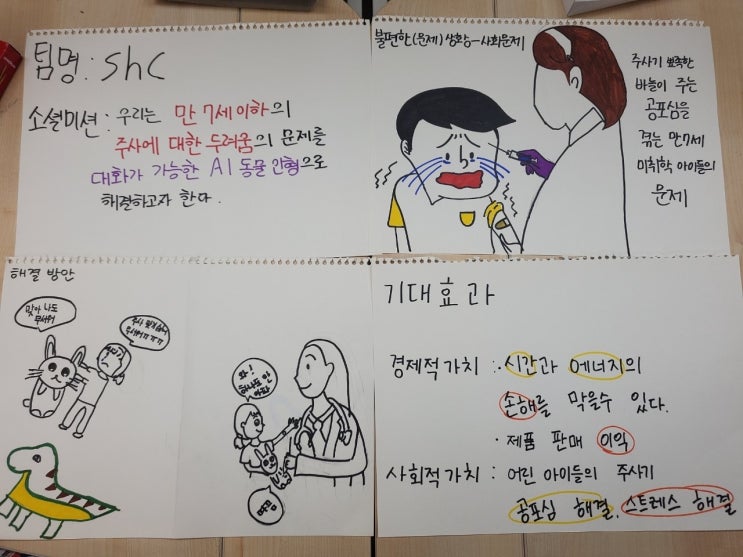 팀명 : shc
소셜미션 : 우리는 만 7세 이하의
주사에 대한 두려움의 문제를
대화가 가능한 AI 동물 인형으로
해결하고자 한다.
불편한(문제) 상황 - 사회문제
주사기 뾰족한
바늘이 주는
공포심을
겪는 만 7세
미취학 아이들의
문제
해결 방안
맞아 나도
무서워
주사 맞기 싫어
무서워 ㅠㅠㅠ
와!
하나도 안
아파
기대효과
경제적 가치 : · 시간과 에너지의
손해를 막을수 있다.
· 제품 판매 이익
사회적가치 : 어린 아이들의 주사기
공포심 해결, 스트레스 해결